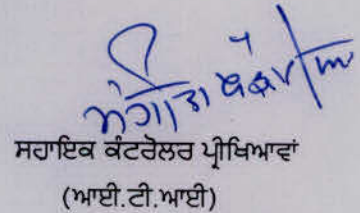 ਸਹਾਇਕ ਕੰਟਰੋਲਰ ਪ੍ਰੀਖਿਆਵਾਂ
(ਆਈ.ਟੀ.ਆਈ)